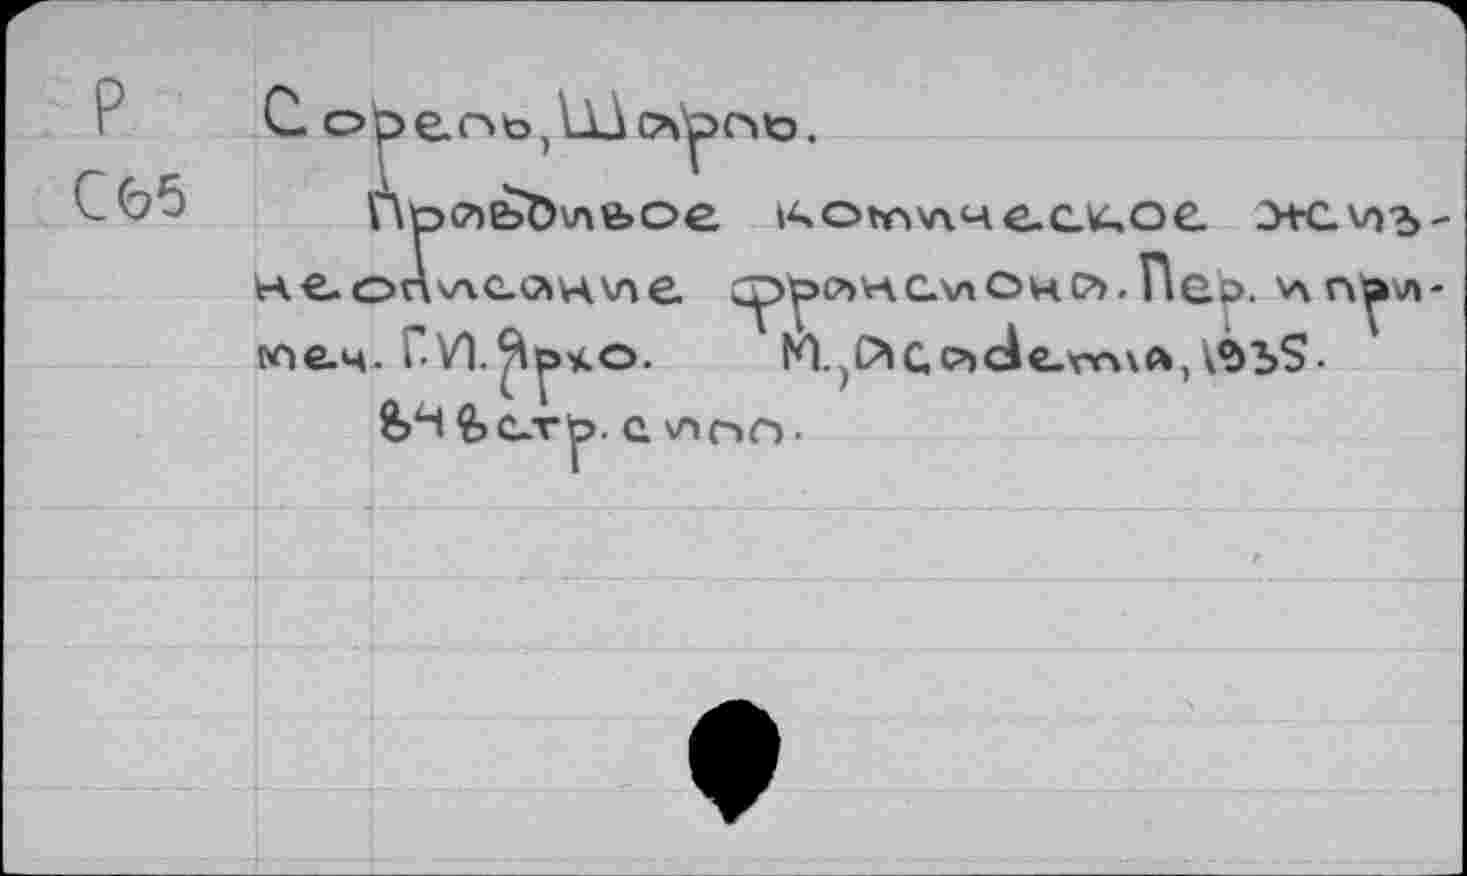 Р
С65
Сорель, Шарль.
Правдивое комическое жиз-
неописание Франсиона. Пер. и при-
меч. Г.И. Ярхо. М., Academia, 1935.
848 стр. с илл.